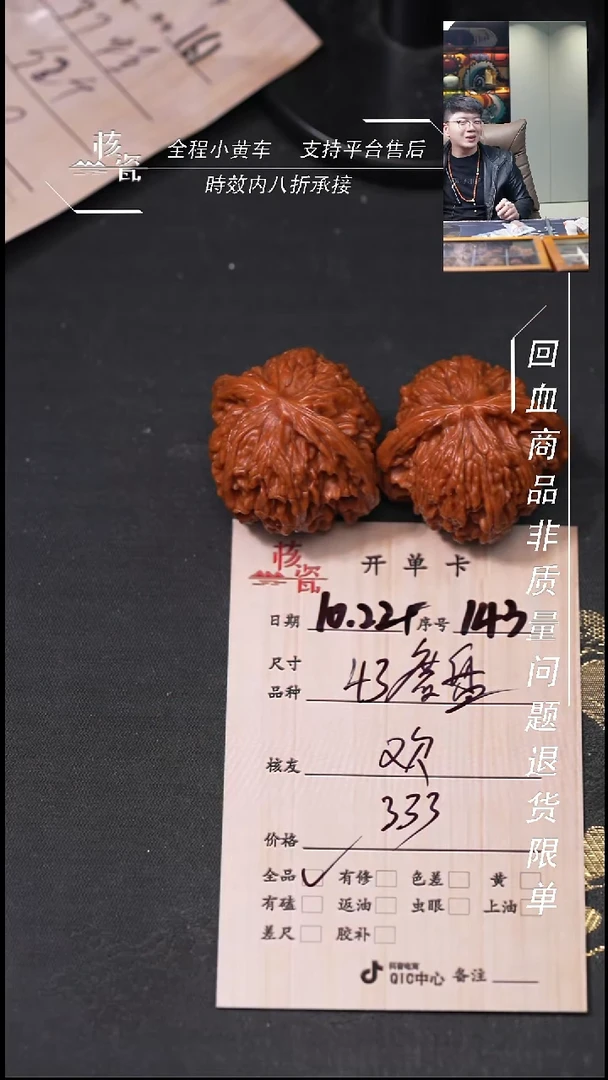 核瓷
全程小黄车 支持平台售后
時效内八折承接
回血商品非质量问题退货限单
核瓷
开单卡
日期 10.22 序号 143
尺寸
品种 43
核友 欢
333
价格
全品 ✓ 有修 色差 黄
有磕 返油 虫眼 上油
差尺 胶补
抖音电商
QIC中心 备注